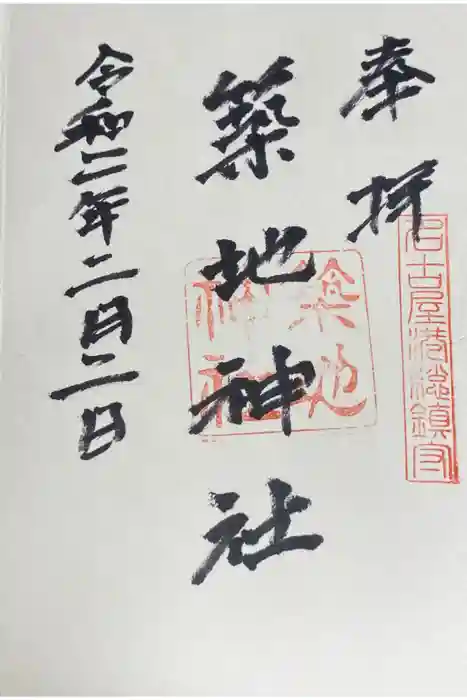 奉拝
名古屋港総鎮守
築地神社
築地神社
令和二年二月二日